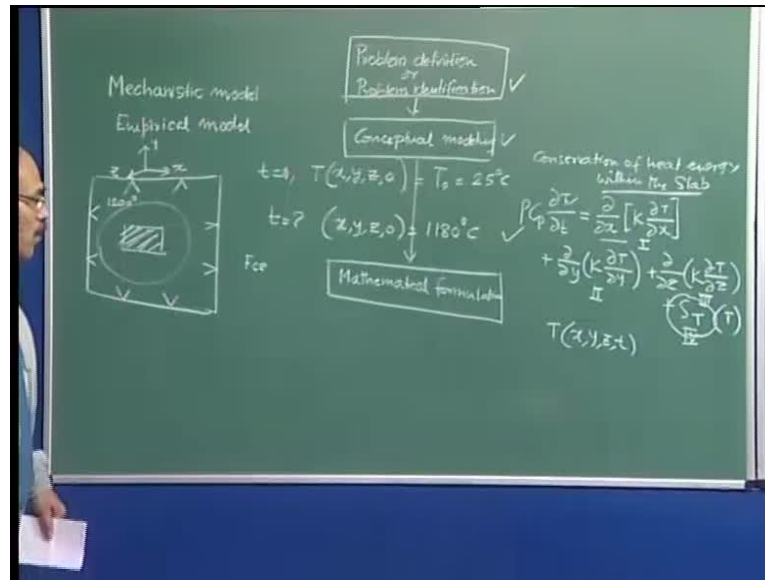 Mechanistic model
Empirical model
y
z
x
1200°
Fce
Problem definition
or
Problem identification ✓
Conceptual modeling ✓
t=0, T(x,y,z,0) = T₀ = 25°C
t=? (x,y,z,0) = 1180°C ✓
Mathematical formulation
Conservation of heat energy
within the Slab
ρCp ∂T/∂t = ∂/∂x [K ∂T/∂x]
I
+ ∂/∂y (K ∂T/∂y) + ∂/∂z (K ∂T/∂z)
II III
+ S_T (T)
IV
T(x,y,z,t)